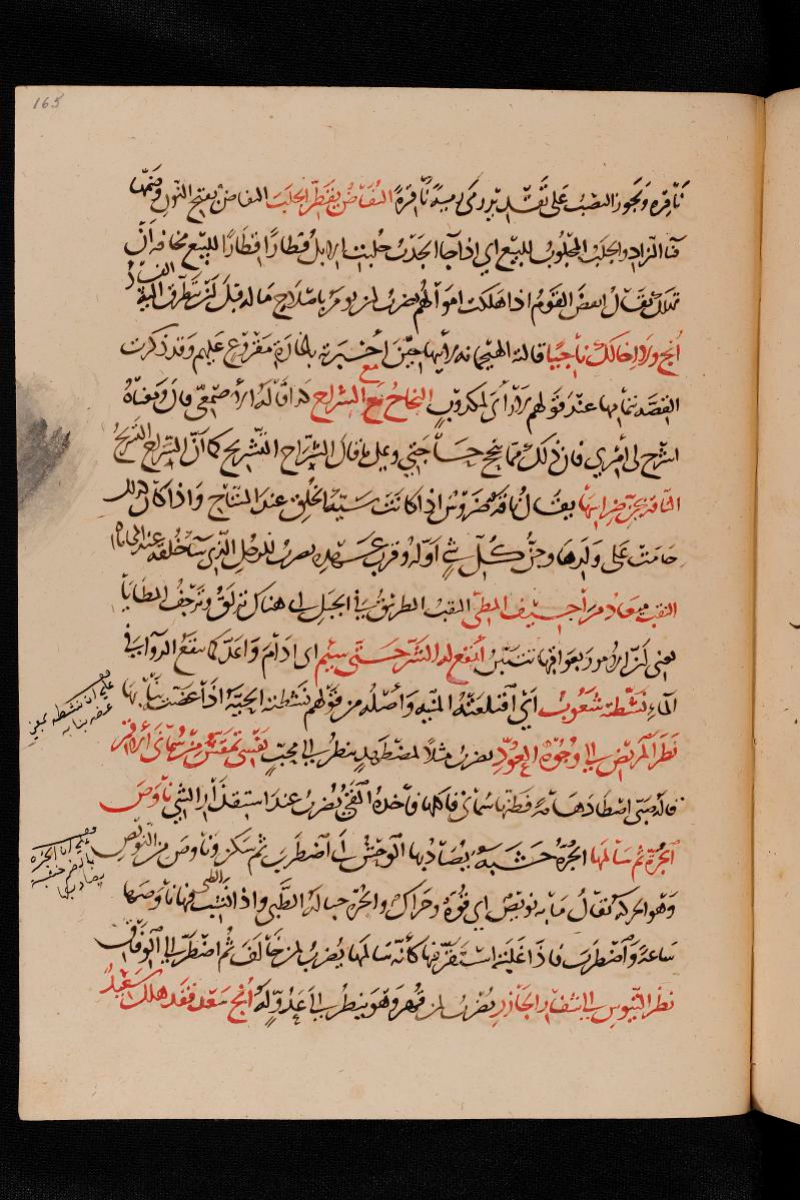 165
ناقره ويجوز النصب على تقدير رمى رمية ناقرة النفاض يقطر الجلب النفاض بفتح النون وضمها
فنا الزاد والجلب المجلوب للبيع اي اذا جا الجدب جلبت الابل قطارا قطارا للبيع مخافة أن
تهلك يقال انفض القوم اذا هلكت اموالهم يضرب لمن يومر باصلاح ماله قبل ان يتطرق اليه الفساد
انج ولا اخالك ناجيا قالته الهيجمانه لابيها حين أخبرته بالغارة مفزوع عليهم وقد ذكرت
القصه بتمامها عند قولهم لا رأى لمكذوب النجاح مع الشراح قاله الاصمعي قال ومعناه
مع
اشرح لى امري فان ذلك مما ينجح حاجتي وعلى ما قال الشراح التشريح كما أن السراح التسريح
الناقة بجن ضراسها يقال ناقة ضروس اذا كانت سيئة الخلق عند النتاج واذا كان كذلك
حامت على ولدها وجن كل شي أوله وقرب عهده يضرب للرجل الذي ساء خلقه عند المحاماه
النقب ميعاد مزاحيف المطي النقب الطريق في الجبل اي هناك تزلق وتزحف المطايا
يعني ان الامور بعواقبها تتبين أنقع له الشر حتى سئم اى ادام واعد كما ينقع الدواء في
الماء نشطته شعوب اي اقتلعته المنيه واصله من قولهم نشطته الحية اذا عضته بنابها
على ان نشطته بمعنى
عضه بنابه
نظر المريض الى وجوه العود يضرب مثلا لمضطهد ينظر الى محب نفسي تمقس من سمانى الاقبر
قاله صبى اصطاد هامة فظنها سمانى فاكلها فاخذه القي يضرب عند استقذار الشي ناوص
الجرة ثم سالمها الجرة خشبة يصاد بها الوحش اي اضطرب ثم سكن وناوص من النويص
على ان الجره
بالضم خشبة
يصاد بها
وهو الحركة يقال ما به نويص اي قوة وحراك والجرة حبالة الظبي واذا نشب الظبي فيها ناوصها
ساعة واضطرب فاذا غلبته استقر فيها كأنه سالمها يضرب لمن خالف ثم اضطر الى الوفاق
نظر التيوس الى شفار الجازر يضرب لمن قهر وهو ينظر الى عدو له انج سعد فقد هلك سعيد